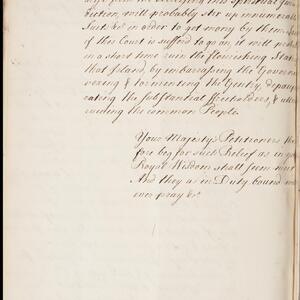 diction, will probably stir up innumerable
Suits &c in order to get money by them
of this Court is suffered to go on, it will
in a short time ruin the flourishing State
that Island, by embarrassing the Govern
vexing & tormenting the Gentry, depau
rating the substantial Freeholders, &
ruining the common People.
Your Majesty's Petitioners the
fore beg for such Relief as in
Royal Wisdom shall seem
And they as in Duty bound
ever pray &c.